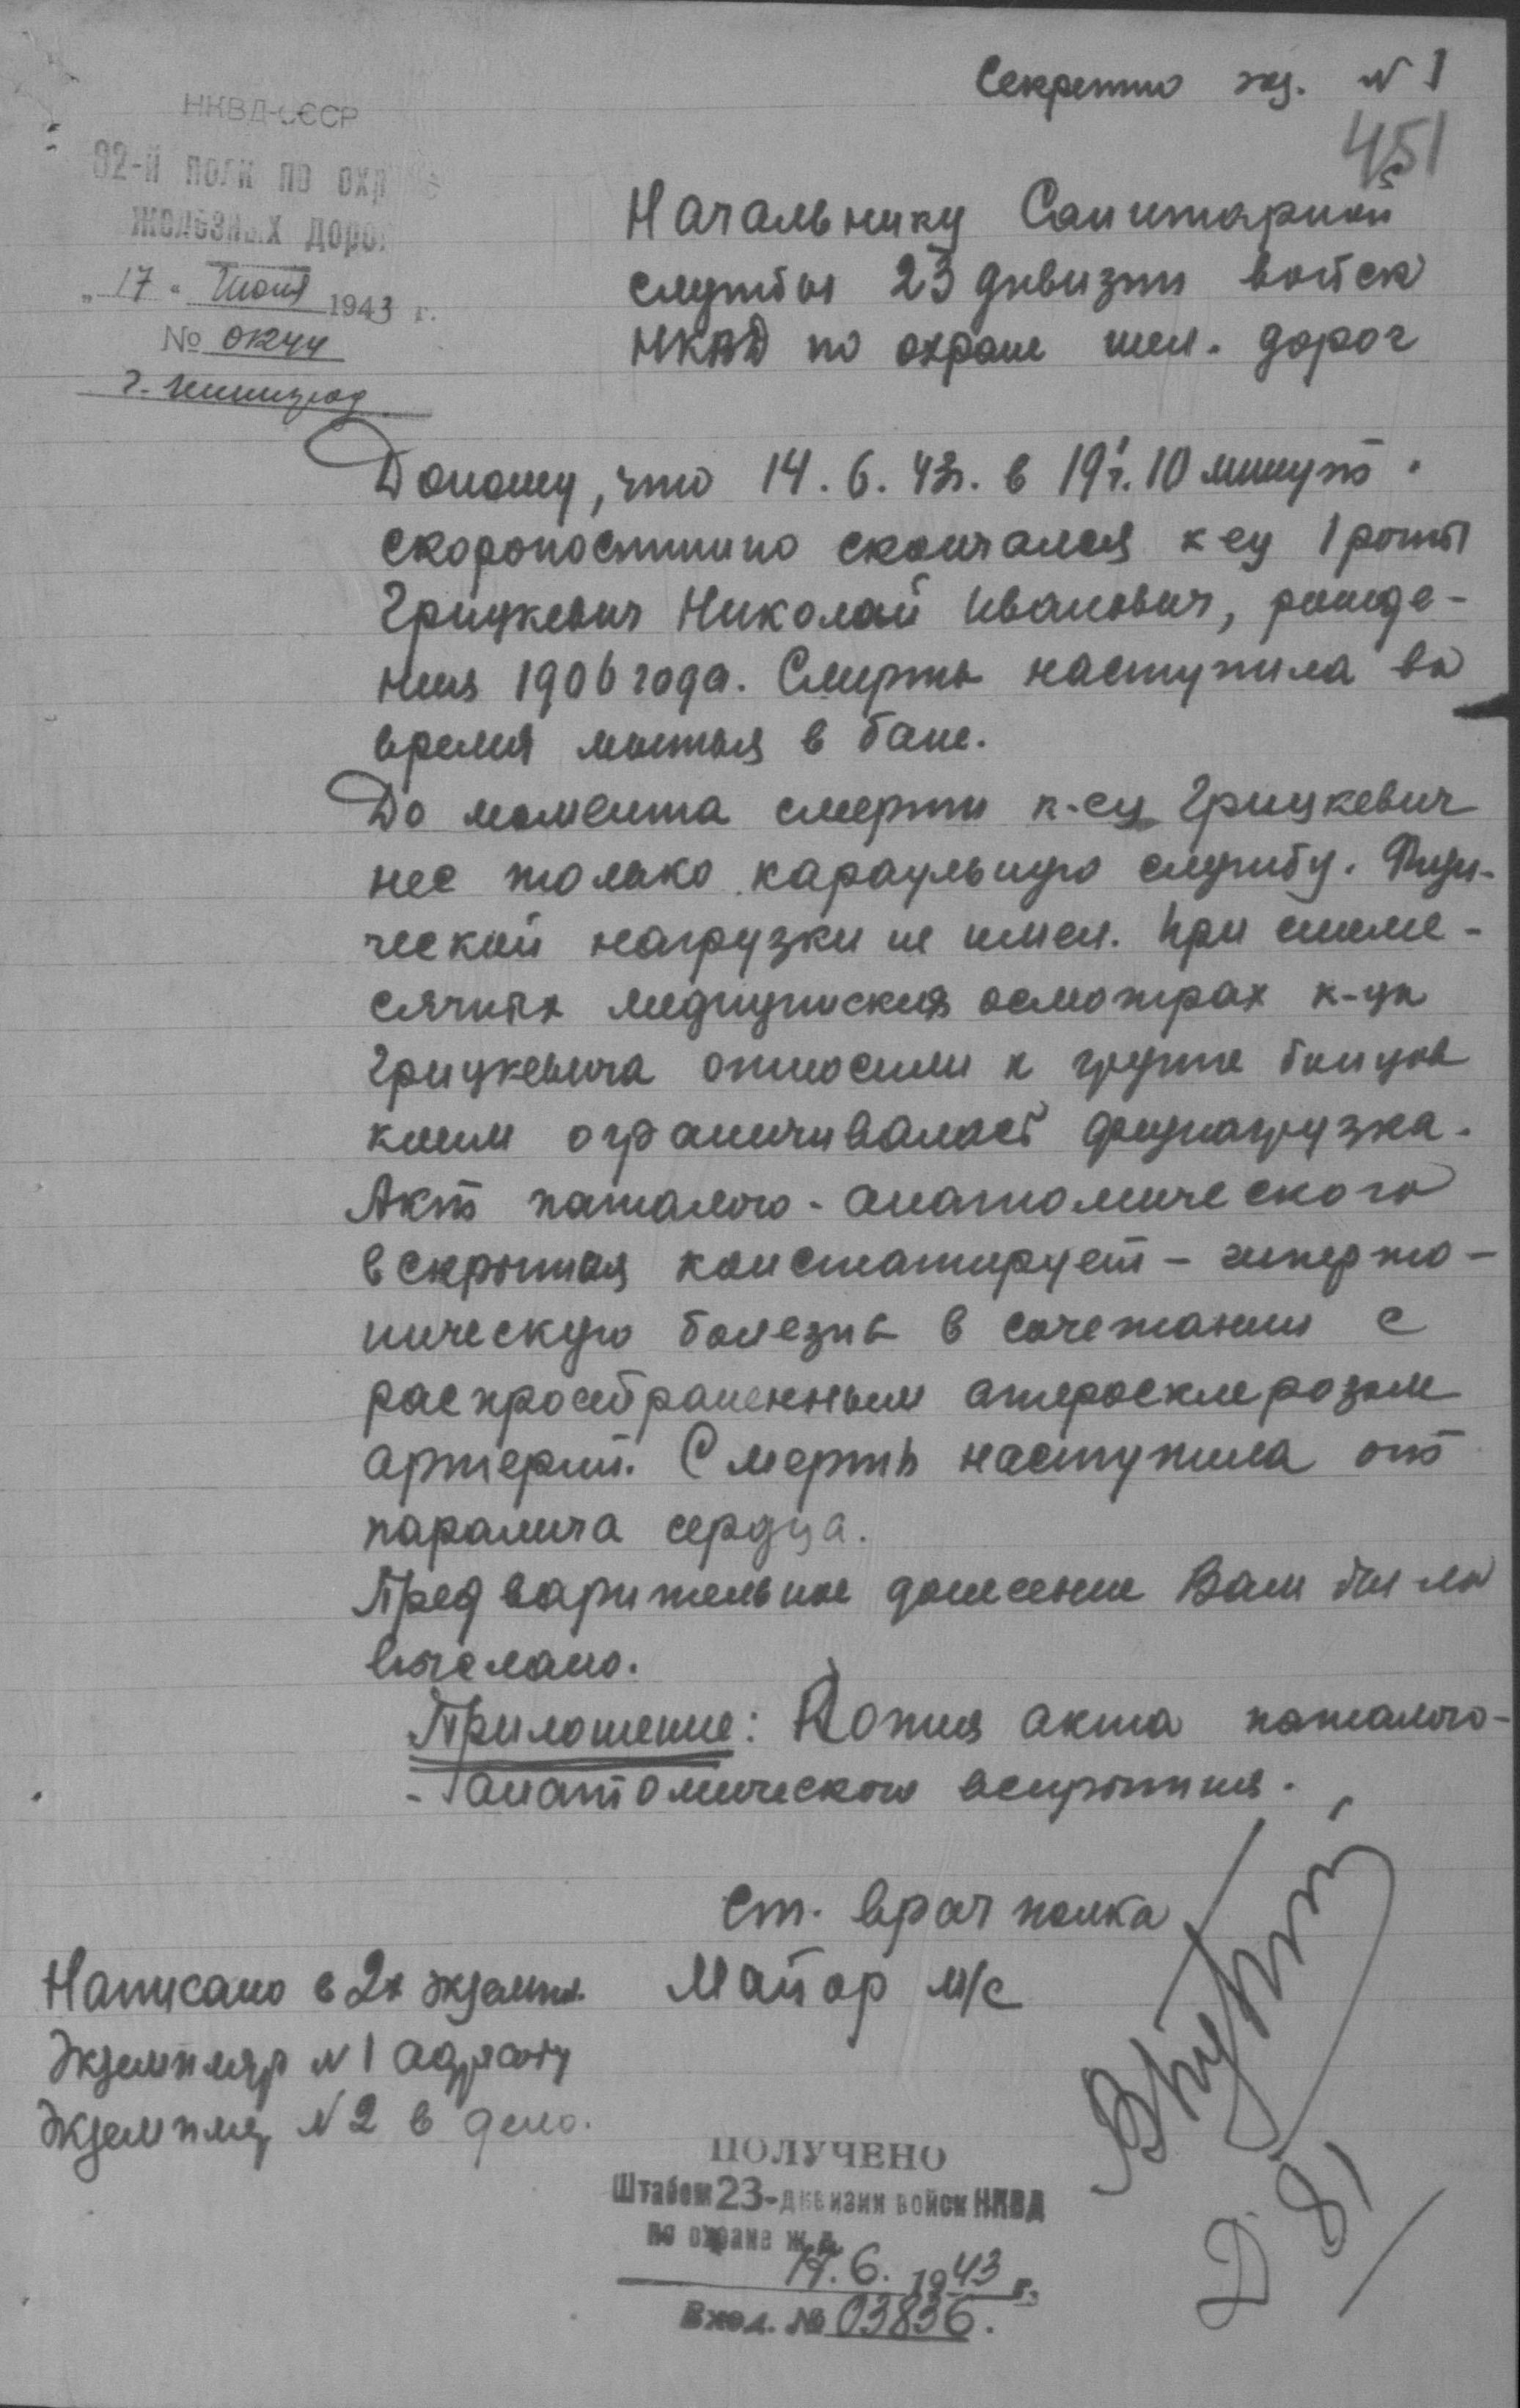 Секретно экз. N 1
451
НКВД-СССР
92-й полк по охране
железных дорог
"17" Июня 1943 г.
№ 01244
г. Ленинград
Начальнику Санитарной
службы 23 дивизии войск
НКВД по охране жел. дорог
Доношу, что 14.6.43г. в 19ч. 10 минут
скоропостижно скончался к-ец 1 роты
Грицкевич Николай Иванович, рожде-
ния 1906 года. Смерть наступила во
время мытья в бане.
До момента смерти к-ец Грицкевич
нес только караульную службу. Физи-
ческой нагрузки не имел. При ежеме-
сячных медицинских осмотрах к-ца
Грицкевича относили к группе бойцов
коим ограничивалась физнагрузка.
Акт паталого-анатомического
вскрытия констатирует - гиперто-
ническую болезнь в сочетании с
распространенным атеросклерозом
артерий. Смерть наступила от
паралича сердца.
Предварительное донесение Вам было
выслано.
Приложение: Копия акта паталого-
-анатомического вскрытия.
Ст. врач полка
Майор м/с
Написано в 2х экземпл.
Экземпляр N 1 адресату
Экземпляр N 2 в дело.
Д 81
ПОЛУЧЕНО
Штабом 23-дивизии войск НКВД
по охране ж.д.
17.6. 1943 г.
Вход. № 03836.